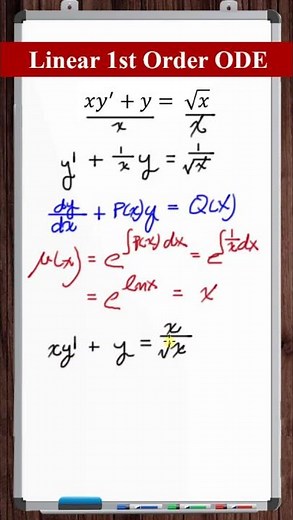 Linear 1st Order ODE
xy′ + y = √x
x x
y' + 1/x y = 1/√x
dy/dx + P(x)y = Q(x)
μ(x) = e^∫P(x)dx = e^∫1/x dx
= e^lnx = x
xy' + y = x/√x